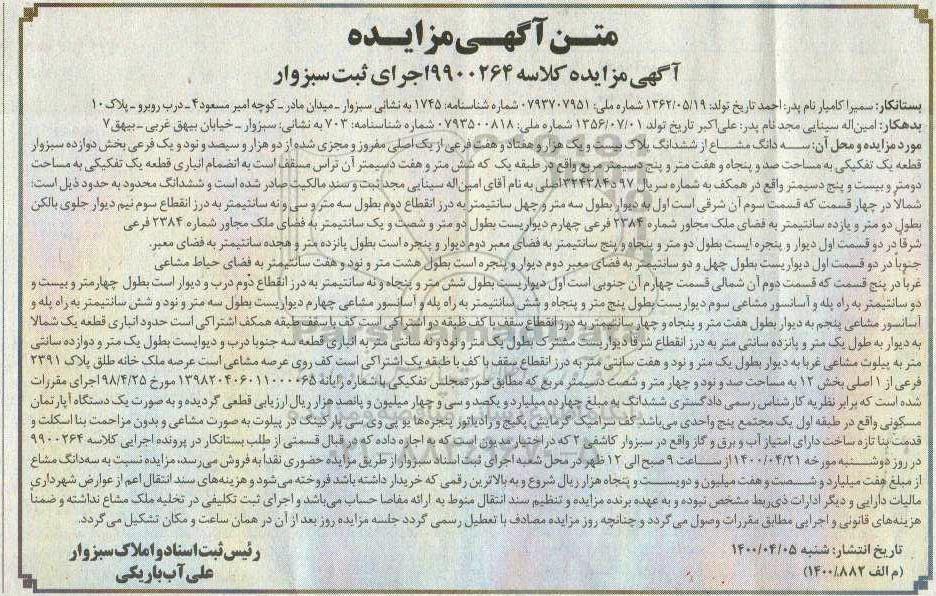 متن آگهی مزایده
آگهی مزایده کلاسه ۹۹۰۰۲۶۴ اجرای ثبت سبزوار
بستانکار: سمیرا کامیار نام پدر: احمد تاریخ تولد: ۱۳۶۲/۰۵/۱۹ شماره ملی: ۰۷۹۳۷۰۷۹۵۱ شماره شناسنامه: ۱۷۴۵ به نشانی سبزوار ـ میدان مادر ـ کوچه امیر مسعود۴ ـ درب روبرو ـ پلاک ۱۰
بدهکار: امین‌اله سینایی مجد نام پدر: علی‌اکبر تاریخ تولد ۱۳۵۶/۰۷/۰۱ شماره ملی: ۰۷۹۳۵۰۰۸۱۸ شماره شناسنامه: ۷۰۳ به نشانی: سبزوار ـ خیابان بیهق غربی ـ بیهق۷
مورد مزایده و محل آن: سه دانگ مشاع از ششدانگ پلاک بیست و یک هزار و هفتاد و هفت فرعی از یک اصلی مفروز و مجزی شده از دو هزار و سیصد و نود و یک فرعی بخش دوازده سبزوار
قطعه یک تفکیکی به مساحت صد و پنجاه و هفت متر و پنج دسیمتر مربع واقع در طبقه یک که شش متر و هفت دسیمتر آن تراس مسقف است به انضمام انباری قطعه یک تفکیکی به مساحت
دومتر و بیست و پنج دسیمتر واقع در همکف به شماره سریال ۹۷ د۳۲۴۳۸۴اصلی به نام آقای امین‌اله سینایی مجد ثبت و سند مالکیت صادر شده است و ششدانگ محدود به حدود ذیل است:
شمالا در چهار قسمت که قسمت سوم آن شرقی است اول به دیوار بطول سه متر و چهل سانتیمتر به درز انقطاع دوم بطول سه متر و سی و نه سانتیمتر به درز انقطاع سوم نیم دیوار جلوی بالکن
بطول دو متر و یازده سانتیمتر به فضای ملک مجاور شماره ۲۳۸۴ فرعی چهارم دیواریست بطول دو متر و شصت و یک سانتیمتر به فضای ملک مجاور شماره ۲۳۸۴ فرعی
شرقا در دو قسمت اول دیوار و پنجره ایست بطول دو متر و پنجاه و پنج سانتیمتر به فضای معبر دوم دیوار و پنجره است بطول پانزده متر و هجده سانتیمتر به فضای معبر.
جنوباً در دو قسمت اول دیواریست بطول چهل و دو سانتیمتر به فضای معبر دوم دیوار و پنجره است بطول هشت متر و نود و هفت سانتیمتر به فضای حیاط مشاعی
غرباً در پنج قسمت که قسمت دوم آن شمالی قسمت چهارم آن جنوبی است اول دیواریست بطول شش متر و پنجاه و نه سانتیمتر به درز انقطاع دوم درب و دیوار است بطول چهارمتر و بیست و
دو سانتیمتر به راه پله و آسانسور مشاعی سوم دیواریست بطول پنج متر و پنجاه و شش سانتیمتر به راه پله و آسانسور مشاعی چهارم دیواریست بطول سه متر و نود و شش سانتیمتر به راه پله و
آسانسور مشاعی پنجم به دیوار بطول هفت متر و پنجاه و چهار سانتیمتر به درز انقطاع سقف با کف طبقه دو اشتراکی است کف با سقف طبقه همکف اشتراکی است حدود انباری قطعه یک شمالا
به دیوار به طول یک متر و پانزده سانتی متر به درز انقطاع شرقا دیواریست مشترک بطول یک متر و نود و نه سانتی متر به انباری قطعه سه جنوبا درب و دیوایست بطول یک متر و دوازده سانتی
متر به پیلوت مشاعی غربا به دیوار بطول یک متر و نود و هفت سانتی متر به درز انقطاع سقف با کف با طبقه یک اشتراکی است کف روی عرصه مشاعی است عرصه ملک خانه طلق پلاک ۲۳۹۱
فرعی از ۱ اصلی بخش ۱۲ به مساحت صد و نود و چهار متر و شصت دسیمتر مربع که مطابق صورتمجلس تفکیکی با شماره رایانه ۱۳۹۸۲۰۴۰۶۰۱۱۰۰۰۰۶۵ مورخ ۹۸/۴/۲۵ اجرای مقررات
شده است که برابر نظریه کارشناس رسمی دادگستری ششدانگ به مبلغ چهارده میلیارد و یکصد و سی و چهار میلیون و پانصد هزار ریال ارزیابی قطعی گردیده و به صورت یک دستگاه آپارتمان
مسکونی واقع در طبقه اول یک مجتمع پنج واحدی می‌باشد کف سرامیک گرمایش پکیج و رادیاتور پنجره‌ها یو پی وی سی پارکینگ در پیلوت به صورت مشاعی و بدون مزاحمت بنا اسکلت و
قدمت بنا تازه ساخت دارای امتیاز آب و برق و گاز واقع در سبزوار کاشفی ۲ که در اختیار مدیون است که به اجازه داده که در قبال قسمتی از طلب بستانکار در پرونده اجرایی کلاسه ۹۹۰۰۲۶۴
در روز دوشنبه مورخه ۱۴۰۰/۰۴/۲۱ از ساعت ۹ صبح الی ۱۲ ظهر در محل شعبه اجرای ثبت اسناد سبزوار از طریق مزایده حضوری نقدا به فروش می‌رسد، مزایده نسبت به سه‌دانگ مشاع
از مبلغ هفت میلیارد و شصت و هفت میلیون و دویست و پنجاه هزار ریال شروع و به بالاترین قیمتی که خریدار داشته باشد فروخته می‌شود و هزینه‌های سند انتقال اعم از عوارض شهرداری
مالیات دارایی و دیگر ادارات ذی‌ربط مشخص نبوده و به عهده برنده مزایده و تنظیم سند انتقال منوط به ارائه مفاصا حساب می‌باشد و اجرای ثبت تکلیفی در تخلیه ملک مشاع نداشته و ضمنا
هزینه‌های قانونی و اجرایی مطابق مقررات وصول می گردد و چنانچه روز مزایده مصادف با تعطیل رسمی گردد جلسه مزایده روز بعد از آن در همان ساعت و مکان تشکیل می‌گردد.
تاریخ انتشار: شنبه ۱۴۰۰/۰۴/۰۵
(م الف ۱۴۰۰/۸۸۲)
رئیس ثبت اسناد و املاک سبزوار
علی آب باریکی